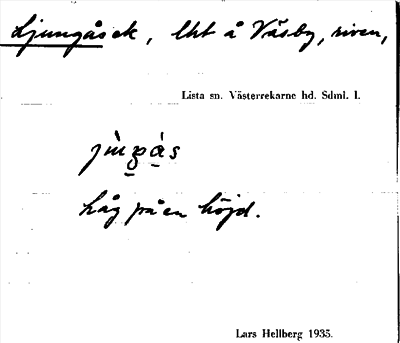 Ljungåsek, lht å Väsby, riven,
Lista sn. Västerrekarne hd. Sdml. l.
jùŋgás
Låg på en höjd.
Lars Hellberg 1935.